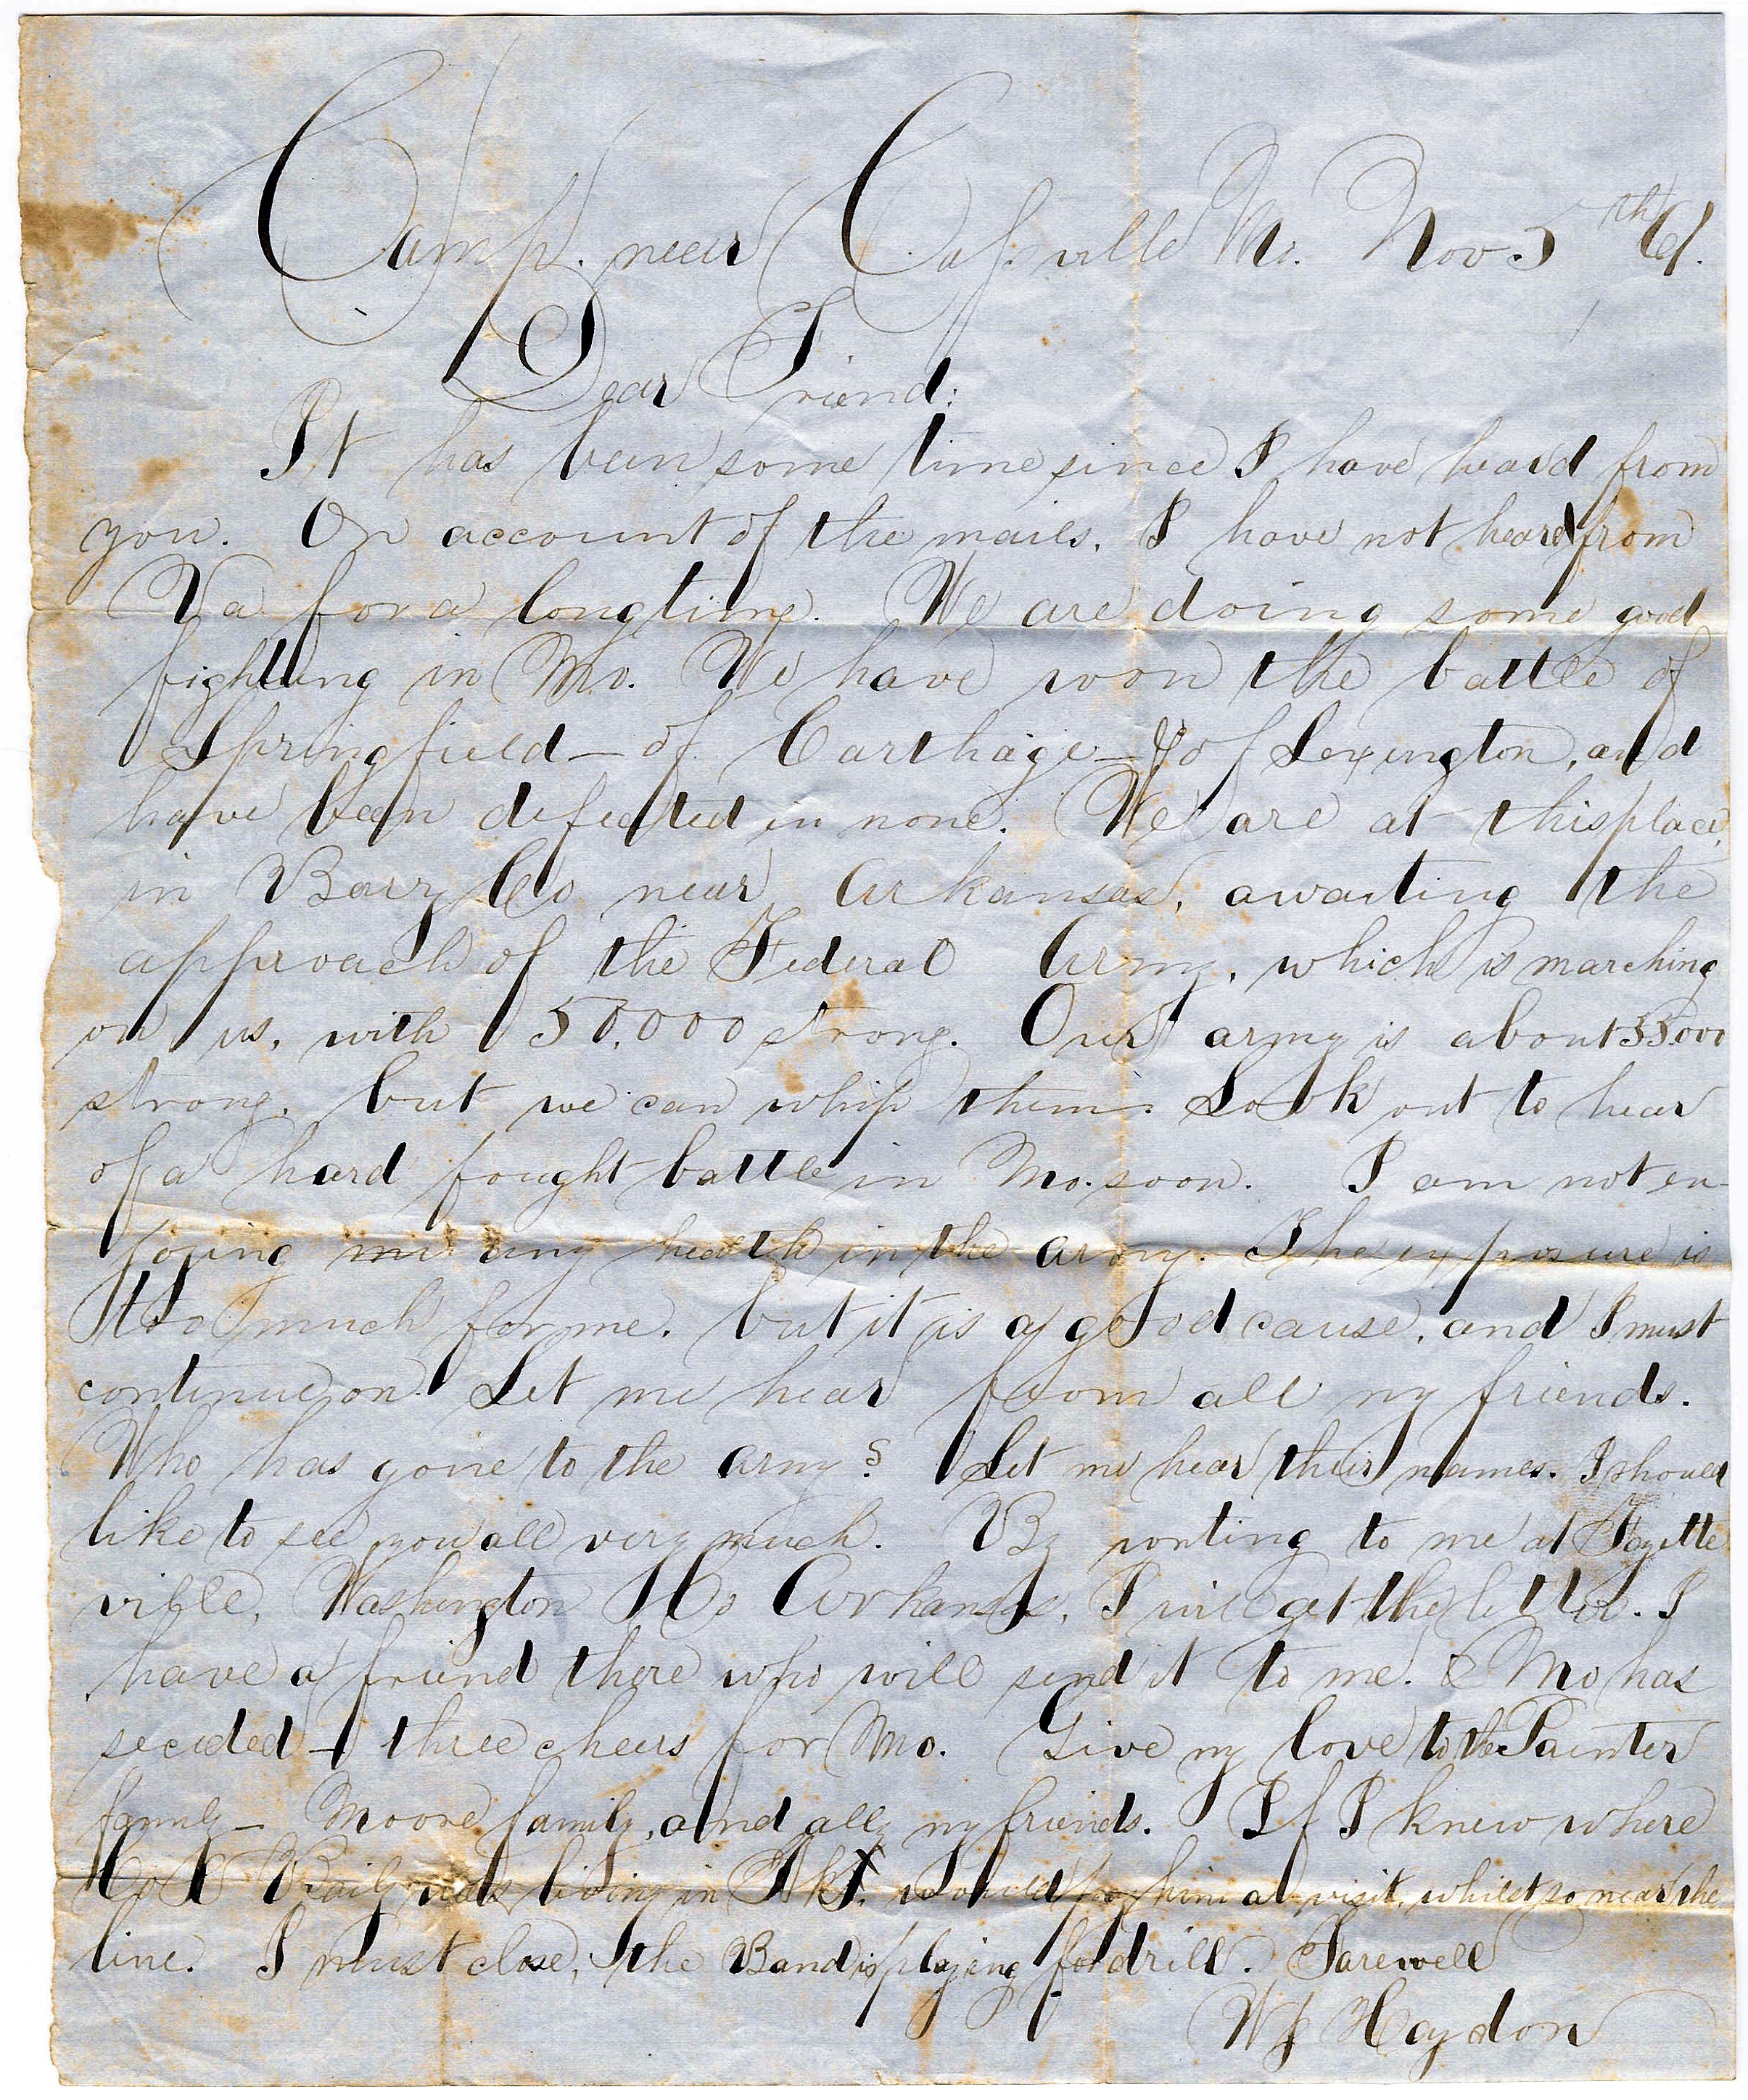 Camp. near Cassville Mo. Nov 5th 61.
Dear Friend:
It has been some time since I have heard from
you. On account of the mails, I have not heard from
Va for a long time. We are doing some good
fighting in Mo. We have won the battle of
Springfield – of Carthage – & of Lexington, and
have been defeated in none. We are at this place,
in Barry Co near Arkansas, awaiting the
approach of the Federal Army, which is marching
on us, with 50,000 strong. Our army is about
strong, but we can whip them. Look out to hear
of a hard fought battle in Mo. soon. I am not en-
joying my health in the army. The exposure is
too much for me, but it is a good cause, and I must
continue on. Let me hear from all my friends.
Who has gone to the army? Let me hear their names. I should
like to see you all very much. By writing to me at Fayette
ville, Washington Co Arkansas, I will get the letter. I
have a friend there who will send it to me. Mo has
seceded – three cheers for Mo. Give my love to the Painter
family – Moore family, and all my friends. If I knew where
Col Baily was living in Ark, I would pay him a visit, whilst so near the
line. I must close, the Band is playing for drill. Farewell
W J Haydon